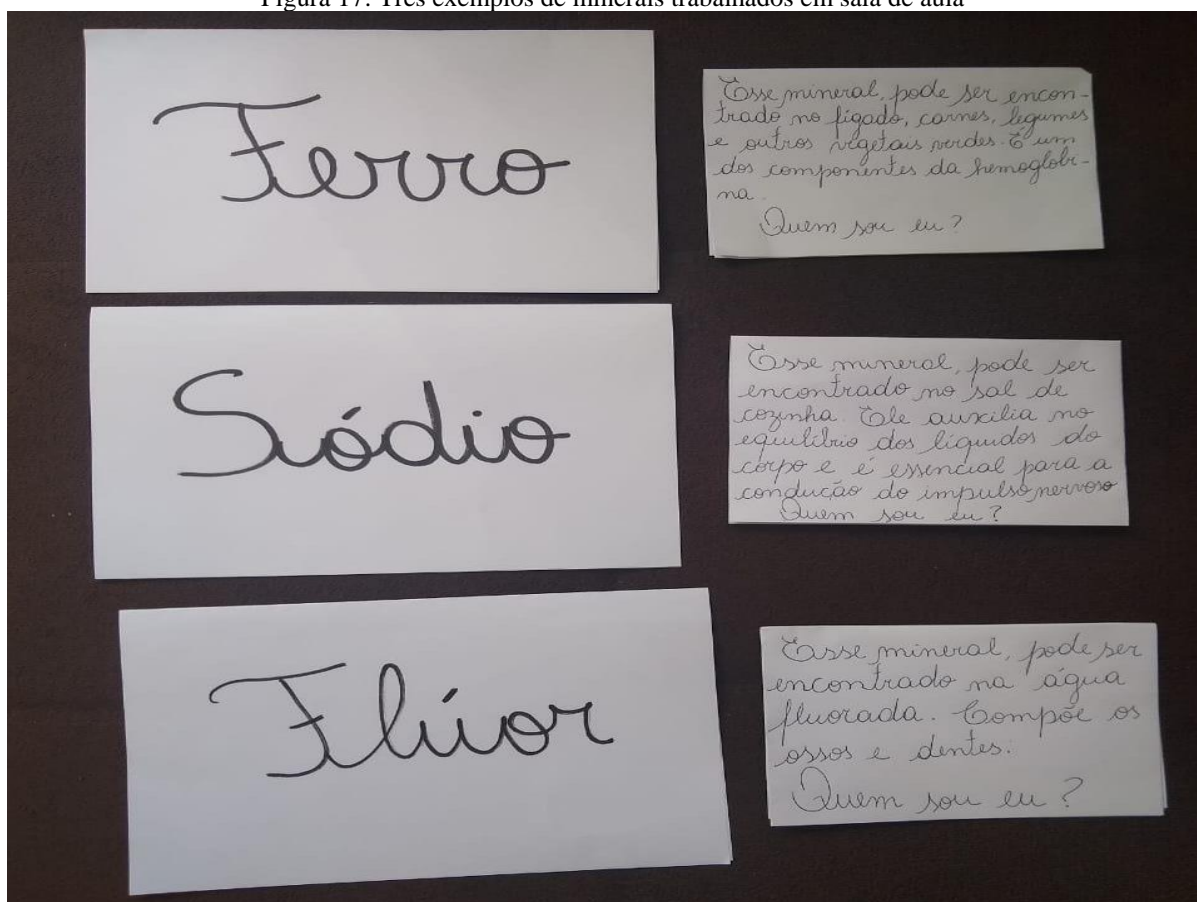 Figura 17: Três exemplos de minerais trabalhados em sala de aula
Ferro
Esse mineral, pode ser encon-
trado no fígado, carnes, legumes
e outros vegetais verdes. É um
dos componentes da hemoglobi-
na.
Quem sou eu?
Sódio
Esse mineral, pode ser
encontrado no sal de
cozinha. Ele auxilia no
equilíbrio dos líquidos do
corpo e é essencial para a
condução do impulso nervoso
Quem sou eu?
Flúor
Esse mineral, pode ser
encontrado na água
fluorada. Compõe os
ossos e dentes.
Quem sou eu?